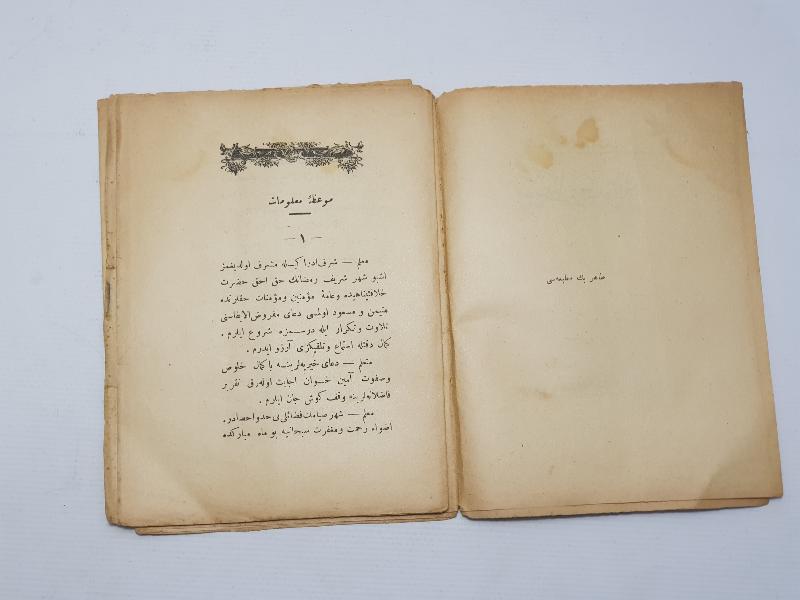 طاهر بك مطبعه‌سی
موعظهٔ معلومات
— ١ —
معلم — شرف ادراكیله مشرف اولدیغمز
اشبو شهر شریف رمضانك حق احق حضرت
خلافتپناهیده وعامهٔ مؤمنین ومؤمنات حقلرنده
متیمن و مسعود اولمسی دعای مفروض‌الایفاسنی
تلاوت وتكرار ایله درسمزه شروع ایلرم .
كمال دقتله استماع وتلقیكزی آرزو ایدرم .
متعلم — دعای خیریه‌لرینه با كمال خلوص
وصفوت آمین خوان اجابت اوله‌رق تقریر
فاضلانه‌لرینه وقف كوش جان ایلرم .
معلم — شهر صیامك فضائلی بی حد واحصادر .
اضواء رحمت ومغفرت سبحانیه بو ماه مباركده